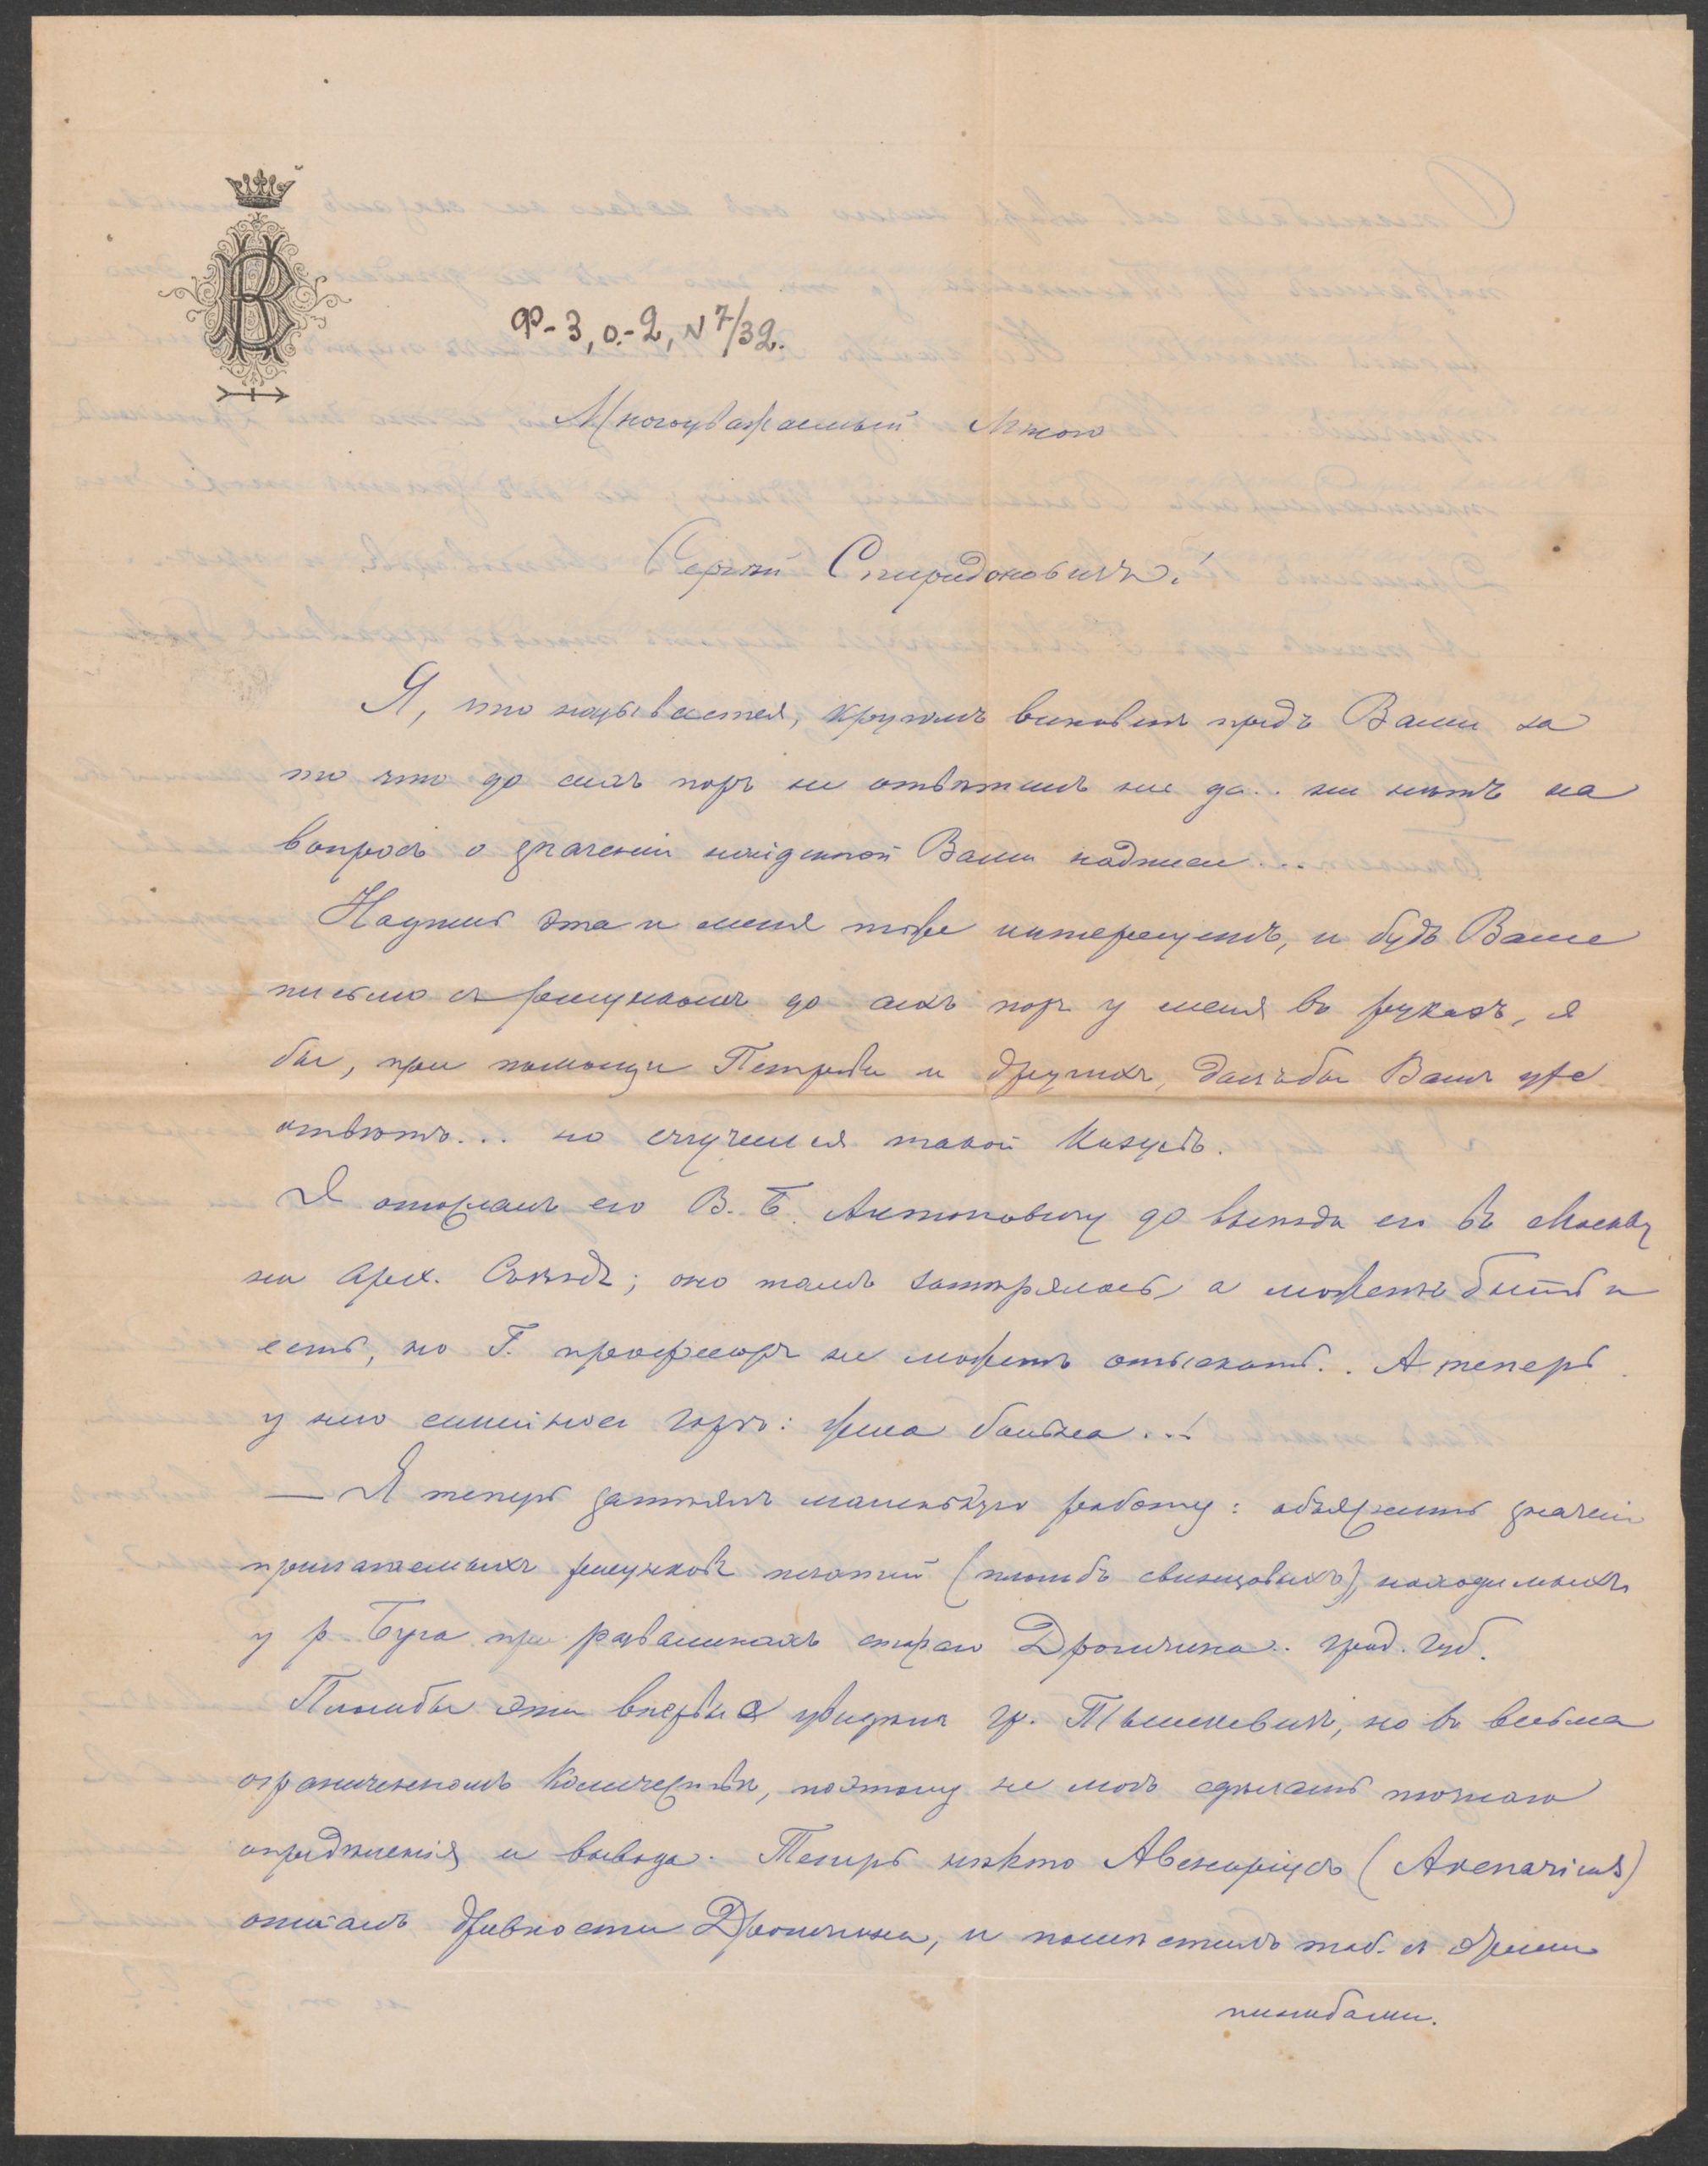 Ф-3, о.-2, N 7/32.
Многоуважаемый Много
Сергѣй Спиридоновичъ!
Я, что называется, кругомъ виноватъ предъ Вами за
то что до сихъ поръ не отвѣтилъ ни да.. ни нѣтъ на
вопросъ о значеніи найденной Вами надписи...
Надпись эта и меня тоже интересуетъ, и будь Ваше
письмо съ рисункомъ до сихъ поръ у меня въ рукахъ, я
бы, при помощи Петрова и другихъ, далъ бы Вамъ уже
отвѣтъ... но случился такой казусъ.
Я отослалъ его В. Б. Антоновичу до выѣзда его въ Москву
на Арх. Съѣздъ; оно тамъ затерялось, а можетъ быть и
есть, но Г. профессоръ не можетъ отыскать.. А теперь
у него семейное горе: жена больна...!
— Я теперь затѣялъ маленькую работу: объяснить значеніе
прилагаемыхъ рисунковъ печатей (пломбъ свинцовыхъ), находимыхъ
у р. Буга при развалинахъ стараго Дрогичина. Грод. губ.
Пломбы эти впервые увидѣлъ гр. Тышкевичъ, но въ весьма
ограниченномъ количествѣ, поэтому не могъ сдѣлать точнаго
опредѣленія и вывода. Теперь нѣкто Авенаріусъ (Avenarius)
описалъ древности Дрогичина, и помѣстилъ таб. съ этими
пломбами.